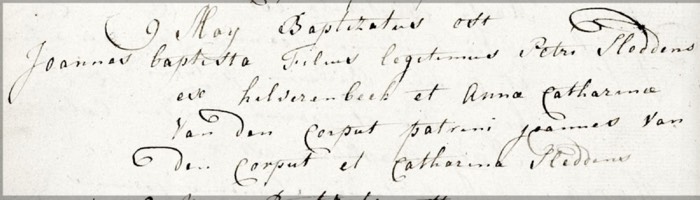 9 May Baptizatus est
Joannes baptista Filius legitimus Petri Sleddens
ex hilverenbeek et Annæ Catharinæ
Van den Corput patrini joannes Van
den Corput et Catharina Sleddens